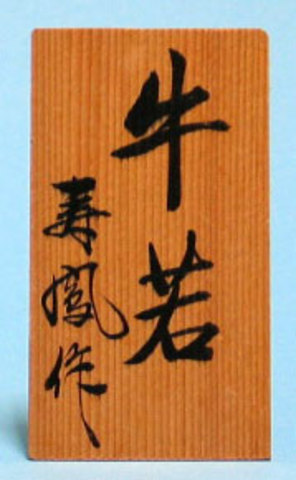 牛若
寿鳳作